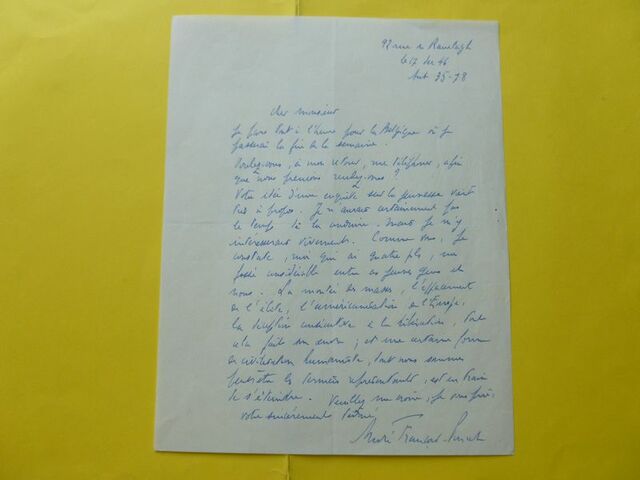 92 rue de Ranelagh
le 17 Dec 46
Aut 35-78
Cher monsieur
Je pars tout à l'heure pour la Belgique où je
passerai la fin de la semaine.
Voulez-vous, à mon retour, me téléphoner, afin
que nous prenions rendez-vous ?
Votre idée d'une enquête sur la jeunesse vient
très à propos. Je n'aurais certainement pas
le temps de la conduire. mais je m'y
intéresserais vivement. Comme vous, je
constate, moi qui ai quatre fils, un
fossé considérable entre ces jeunes gens et
nous. La montée des masses, l'effacement
de l'élite, l'américanisation de l'Europe,
la déception consécutive à la libération, tout
a la fois ; et une certaine forme
de civilisation humaniste, dont nous sommes
peut-être les derniers représentants, est en train
de s'éteindre. Veuillez me croire, je vous prie,
votre sincèrement
André François-Poncet